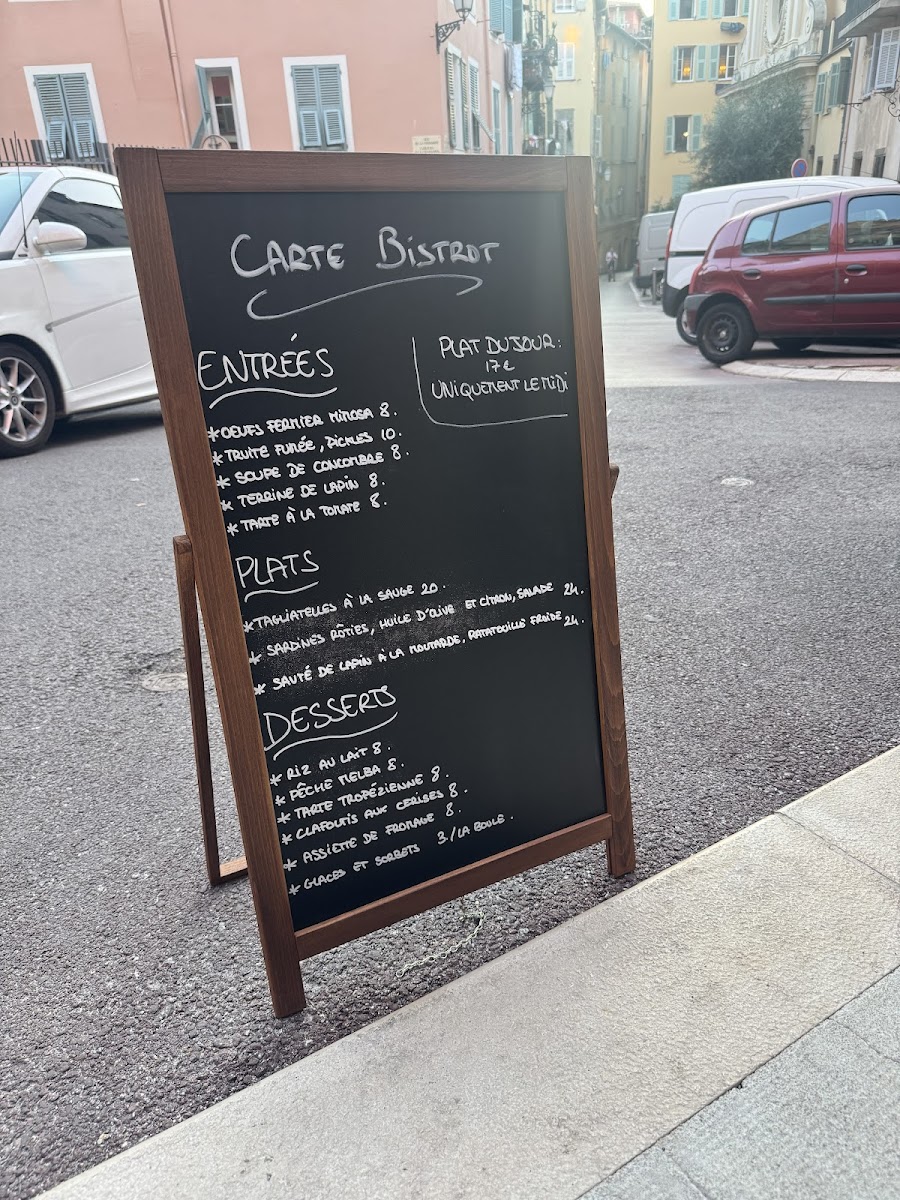 CARTE BISTROT
PLAT DU JOUR :
17€
UNIQUEMENT LE MIDI
ENTRÉES
* OEUFS FERMIER MIMOSA 8.
* TRUITE FUMÉE, PICKLES 10.
* SOUPE DE CONCOMBRE 8.
* TERRINE DE LAPIN 8.
* TARTE À LA TOMATE 8.
PLATS
* TAGLIATELLES À LA SAUGE 20.
* SARDINES RÔTIES, HUILE D'OLIVE ET CITRON, SALADE 24.
* SAUTÉ DE LAPIN À LA MOUTARDE, RATATOUILLE FROIDE 24.
DESSERTS
* RIZ AU LAIT 8.
* PÊCHE MELBA 8.
* TARTE TROPÉZIENNE 8.
* CLAFOUTIS AUX CERISES 8.
* ASSIETTE DE FROMAGE 8.
* GLACES ET SORBETS 3/LA BOULE.